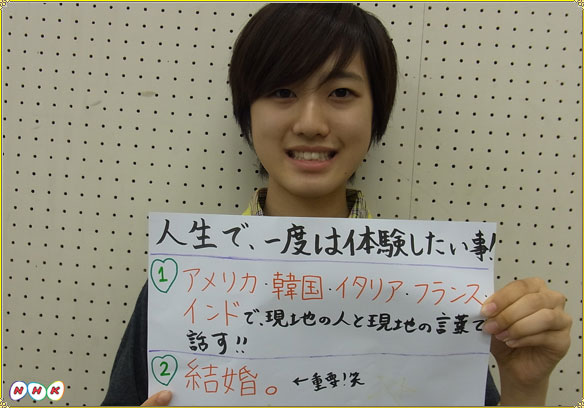 人生で、一度は体験したい事!
1 アメリカ・韓国・イタリア・フランス・
インドで、現地の人と現地の言葉で
話す!!
2 結婚。 ←重要!笑
NHK